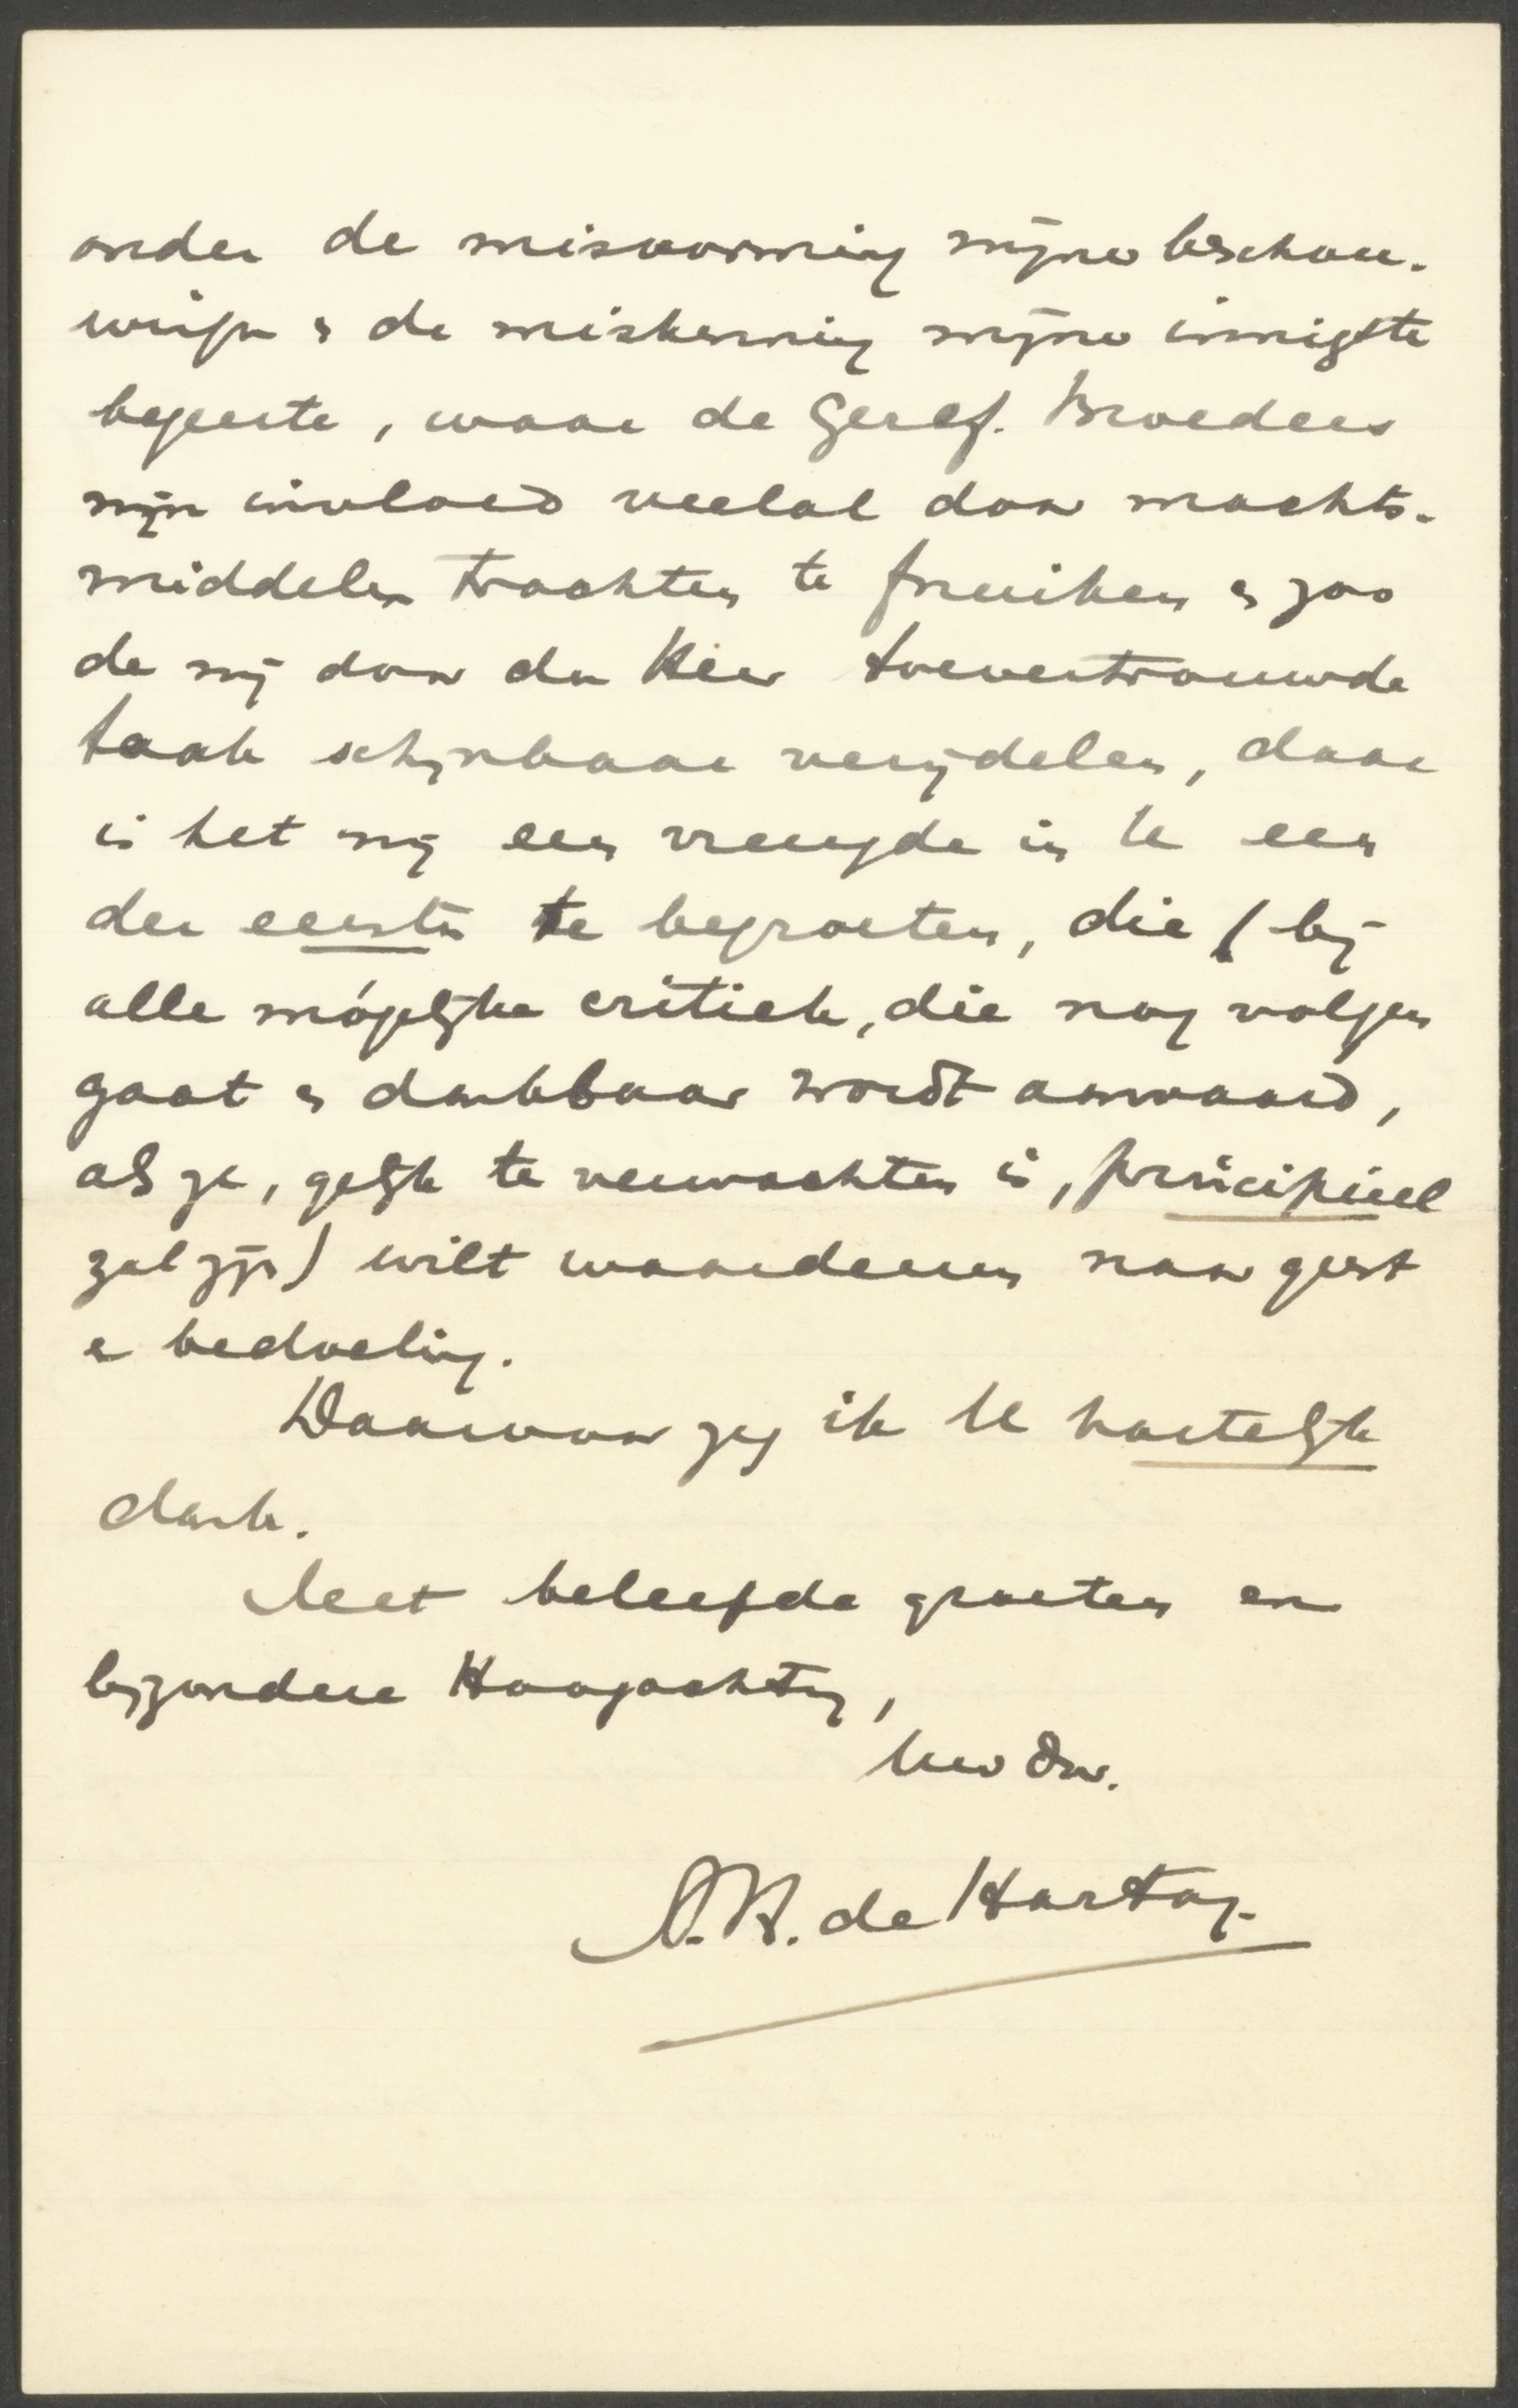 onder de misvorming mijner beschou-
wingen & de miskenning mijner innigste
begeerte, waar de Geref. Broeders
mijn invloed veelal door machts-
middelen trachten te fnuiken & zoo
de mij door den Heer toevertrouwde
taak schijnbaar verijdelen, daar
is het mij een vreugde in U een
der eersten te begroeten, die (bij
alle mógelijke critiek, die nog volgen
gaat & dankbaar wordt aanvaard,
als ze, gelijk te verwachten is, principieel
zal zijn) wilt waardeeren naar geest
& bedoeling.
Daarvoor zeg ik U hartelijk
dank.
Met beleefde groeten en
bijzondere Hoogachting,
Uw Dw.
A.H. de Hartog.